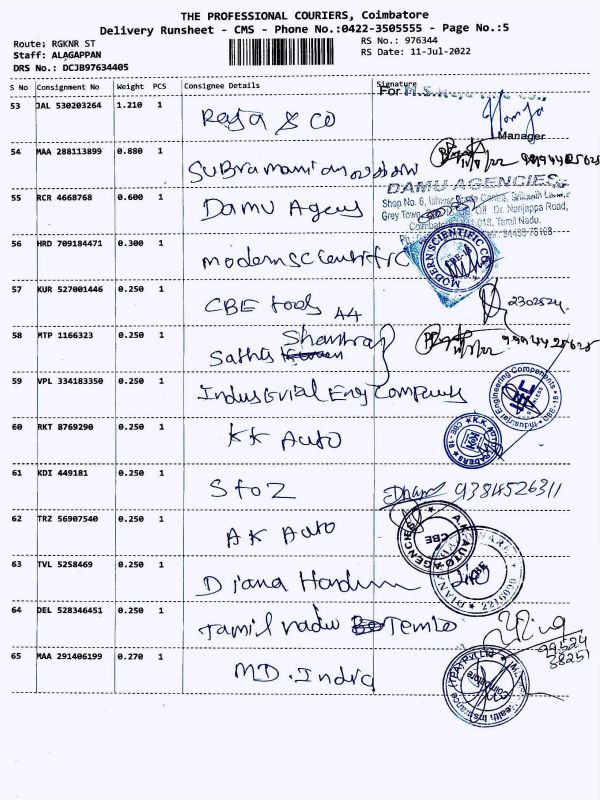 THE PROFESSIONAL COURIERS, Coimbatore
Delivery Runsheet - CMS - Phone No.:0422-3505555 - Page No.:5
Route: RGKNR ST
Staff: ALAGAPPAN
DRS No.: DCJB97634405
RS No.: 976344
RS Date: 11-Jul-2022
S No Consignment No Weight PCS Consignee Details Signature
For
53 JAL 530203264 1.210 1 Raja & co
Manager
54 MAA 288113899 0.880 1 Subramanian
55 RCR 4668768 0.600 1 Damu Agency
DAMU AGENCIES
Shop No. 6,
Grey Town, Off Dr. Nanjappa Road,
018, Tamil Nadu.
56 HRD 709184471 0.300 1 modern scientific
MODERN SCIENTIFIC CO
57 KUR 527001446 0.250 1 CBE tools A4
2302524
58 MTP 1166323 0.250 1 Sathis
59 VPL 334183350 0.250 1 Industrial Eng Company
Industrial Engineering Components
CBE-18
60 RKT 8769290 0.250 1 KK Auto
K.K. AUTO TRADERS
CBE-18
61 KDI 449181 0.250 1 S to Z 9384526311
62 TRZ 56907540 0.250 1 AK Auto
A.K AUTO AGENCIES
CBE
63 TVL 5258469 0.250 1 Diana
DIANA
CBE
2216090
64 DEL 528346451 0.250 1 Tamil nadu Tembo
99524
38251
65 MAA 291406199 0.270 1 MD. India
Health Insurance TPA Pvt Ltd
Coimbatore